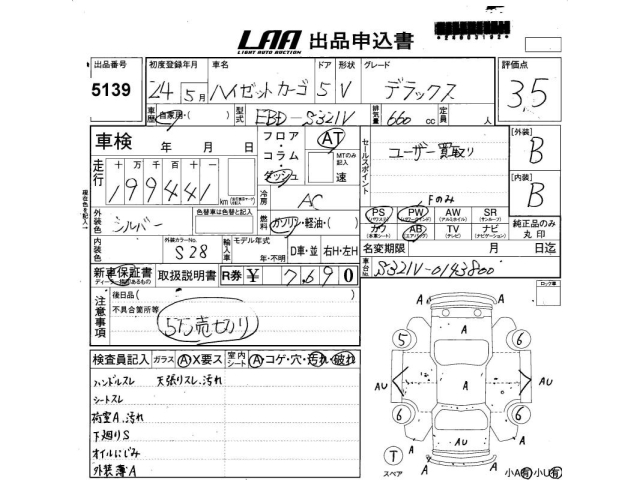 LAA 出品申込書
LIGHT AUTO AUCTION
出品番号 5139
初度登録年月 24年 5月
車名 ハイゼットカーゴ
ドア 5
形状 V
グレード デラックス
評価点 3.5
車歴 自家用・( )
型式 EBD-S321V
排気量 660 cc
定員 人
車検 年 月 日
フロア・コラム・ダッシュ
AT
MTのみ記入 速
セールスポイント
ユーザー買取り
[外装] B
[内装] B
走行 十万千百十一
199441 km
冷房 AC
Fのみ
外装色 シルバー
色替車は色替と記入
燃料 ガソリン・軽油・( )
PS PW AW SR (サンルーフ)
カワ (本革シート) AB (エアバッグ) TV (テレビ) ナビ (ナビゲーション)
純正品のみ丸印
内装色
外装カラーNo. S28
輸入車 モデル年式 年・不明
D車・並
右H・左H
名変期限 月 日迄
新車保証書
取扱説明書
R券 ¥ 7,690
車台No. S321V-0143800
注意事項
後日品( )
不具合箇所等
5万売切り
ロック車
検査員記入
ガラス A X要ス
室内シート A コゲ・穴・汚れ・破れ
ハンドルスレ 天張りスレ、汚れ
シートスレ
荷室A、汚れ
下廻りS
オイルにじみ
外装薄A
A
5 A 6
AU A AU
6 AU 6
A A
T スペア
A A
小A有 小U有